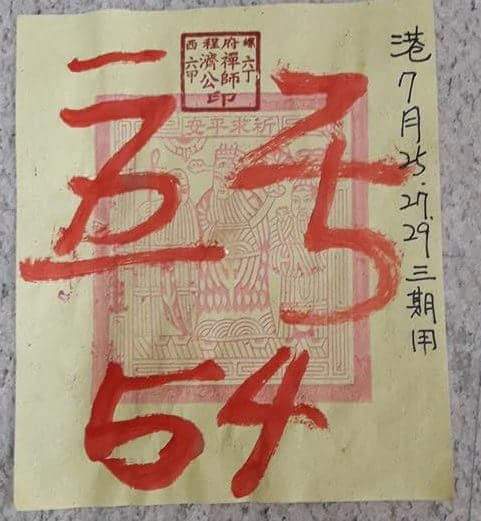 螺六丁
府禪師
程濟公
西六甲
印
祈求平安
港7月25.27.29三期用
54